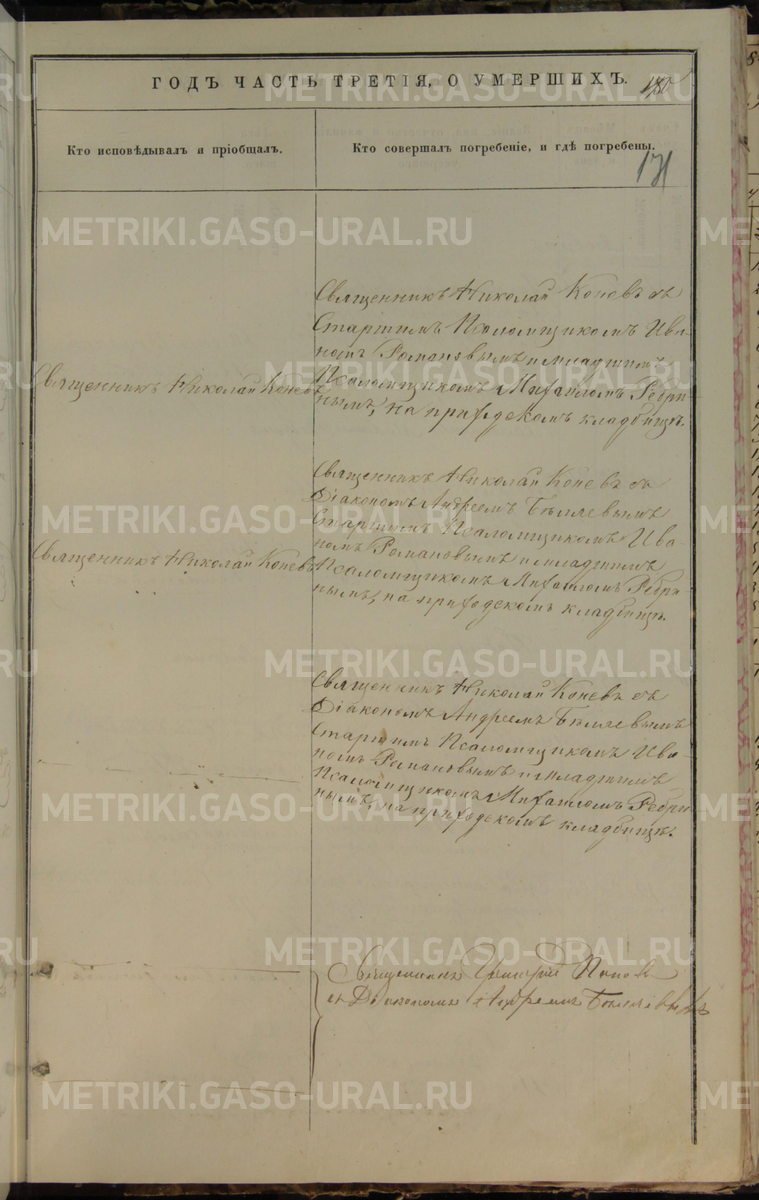 ГОДЪ ЧАСТЬ ТРЕТІЯ, О УМЕРШИХЪ.
171
Кто исповѣдывалъ и пріобщалъ.
Кто совершалъ погребеніе, и гдѣ погребены.
Священникъ Николай Коневъ
Священникъ Николай Коневъ съ
Старшимъ Псаломщикомъ Ива
номъ Романовымъ и младшимъ
Псаломщикомъ Михаиломъ Ребри
нымъ, на приходскомъ кладбищѣ.
Священникъ Николай Коневъ
Священникъ Николай Коневъ съ
Діакономъ Андреемъ Бѣляевымъ
Старшимъ Псаломщикомъ Ива
номъ Романовымъ и младшимъ
Псаломщикомъ Михаиломъ Ребри
нымъ, на приходскомъ кладбищѣ.
Священникъ Николай Коневъ съ
Діакономъ Андреемъ Бѣляевымъ
Старшимъ Псаломщикомъ Ива
номъ Романовымъ и младшимъ
Псаломщикомъ Михаиломъ Ребри
нымъ, на приходскомъ кладбищѣ.
Священникъ Григорій Поповъ
съ Діакономъ Андреемъ Бѣляевымъ
METRIKI.GASO-URAL.RU